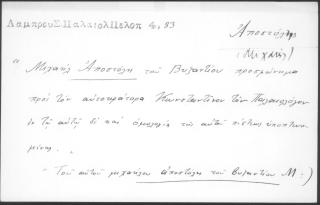 Λαμπρου Σ. Παλαιολ Πελοπ 4, 83
Ἀποστόλης
(Μιχαὴλ)
"Μιχαὴλ Ἀποστόλη τοῦ Βυζαντίου προσφώνημα
πρὸς τὸν αὐτοκράτορα Κωνσταντῖνον τὸν Παλαιολόγον
ἐν τῇ αὐτῇ δὲ καὶ ὁμολογία τῆς αὐτοῦ πίστεως ὑποπτευ-
μένης. "
"Τοῦ αὐτοῦ μιχαήλου ἀποστόλη τοῦ Βυζαντίου Μ:)